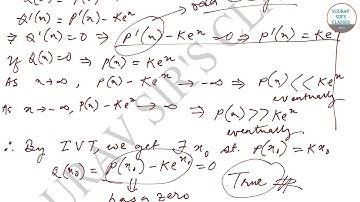 SOURAV
SIR'S
CLASSES
Q'(x) = P'(x) - Ke^x
⇒ Q'(x) = 0 ⇒ P'(x) - Ke^x = 0 ⇒ P'(x) = Ke^x
If Q(x) = 0 ⇒ P(x) = Ke^x
As x → ∞, P(x) - Ke^x → -∞ ⇒ P(x) << Ke^x
eventually
As x → -∞, P(x) - Ke^x → ∞ ⇒ P(x) >> Ke^x
eventually
∴ By IVT, we get ∃ x₀ st. P(x₀) = Kx₀
Q(x₀) = P(x₀) - Ke^x₀ = 0
True
has a zero
SOURAV SIR'S CLA